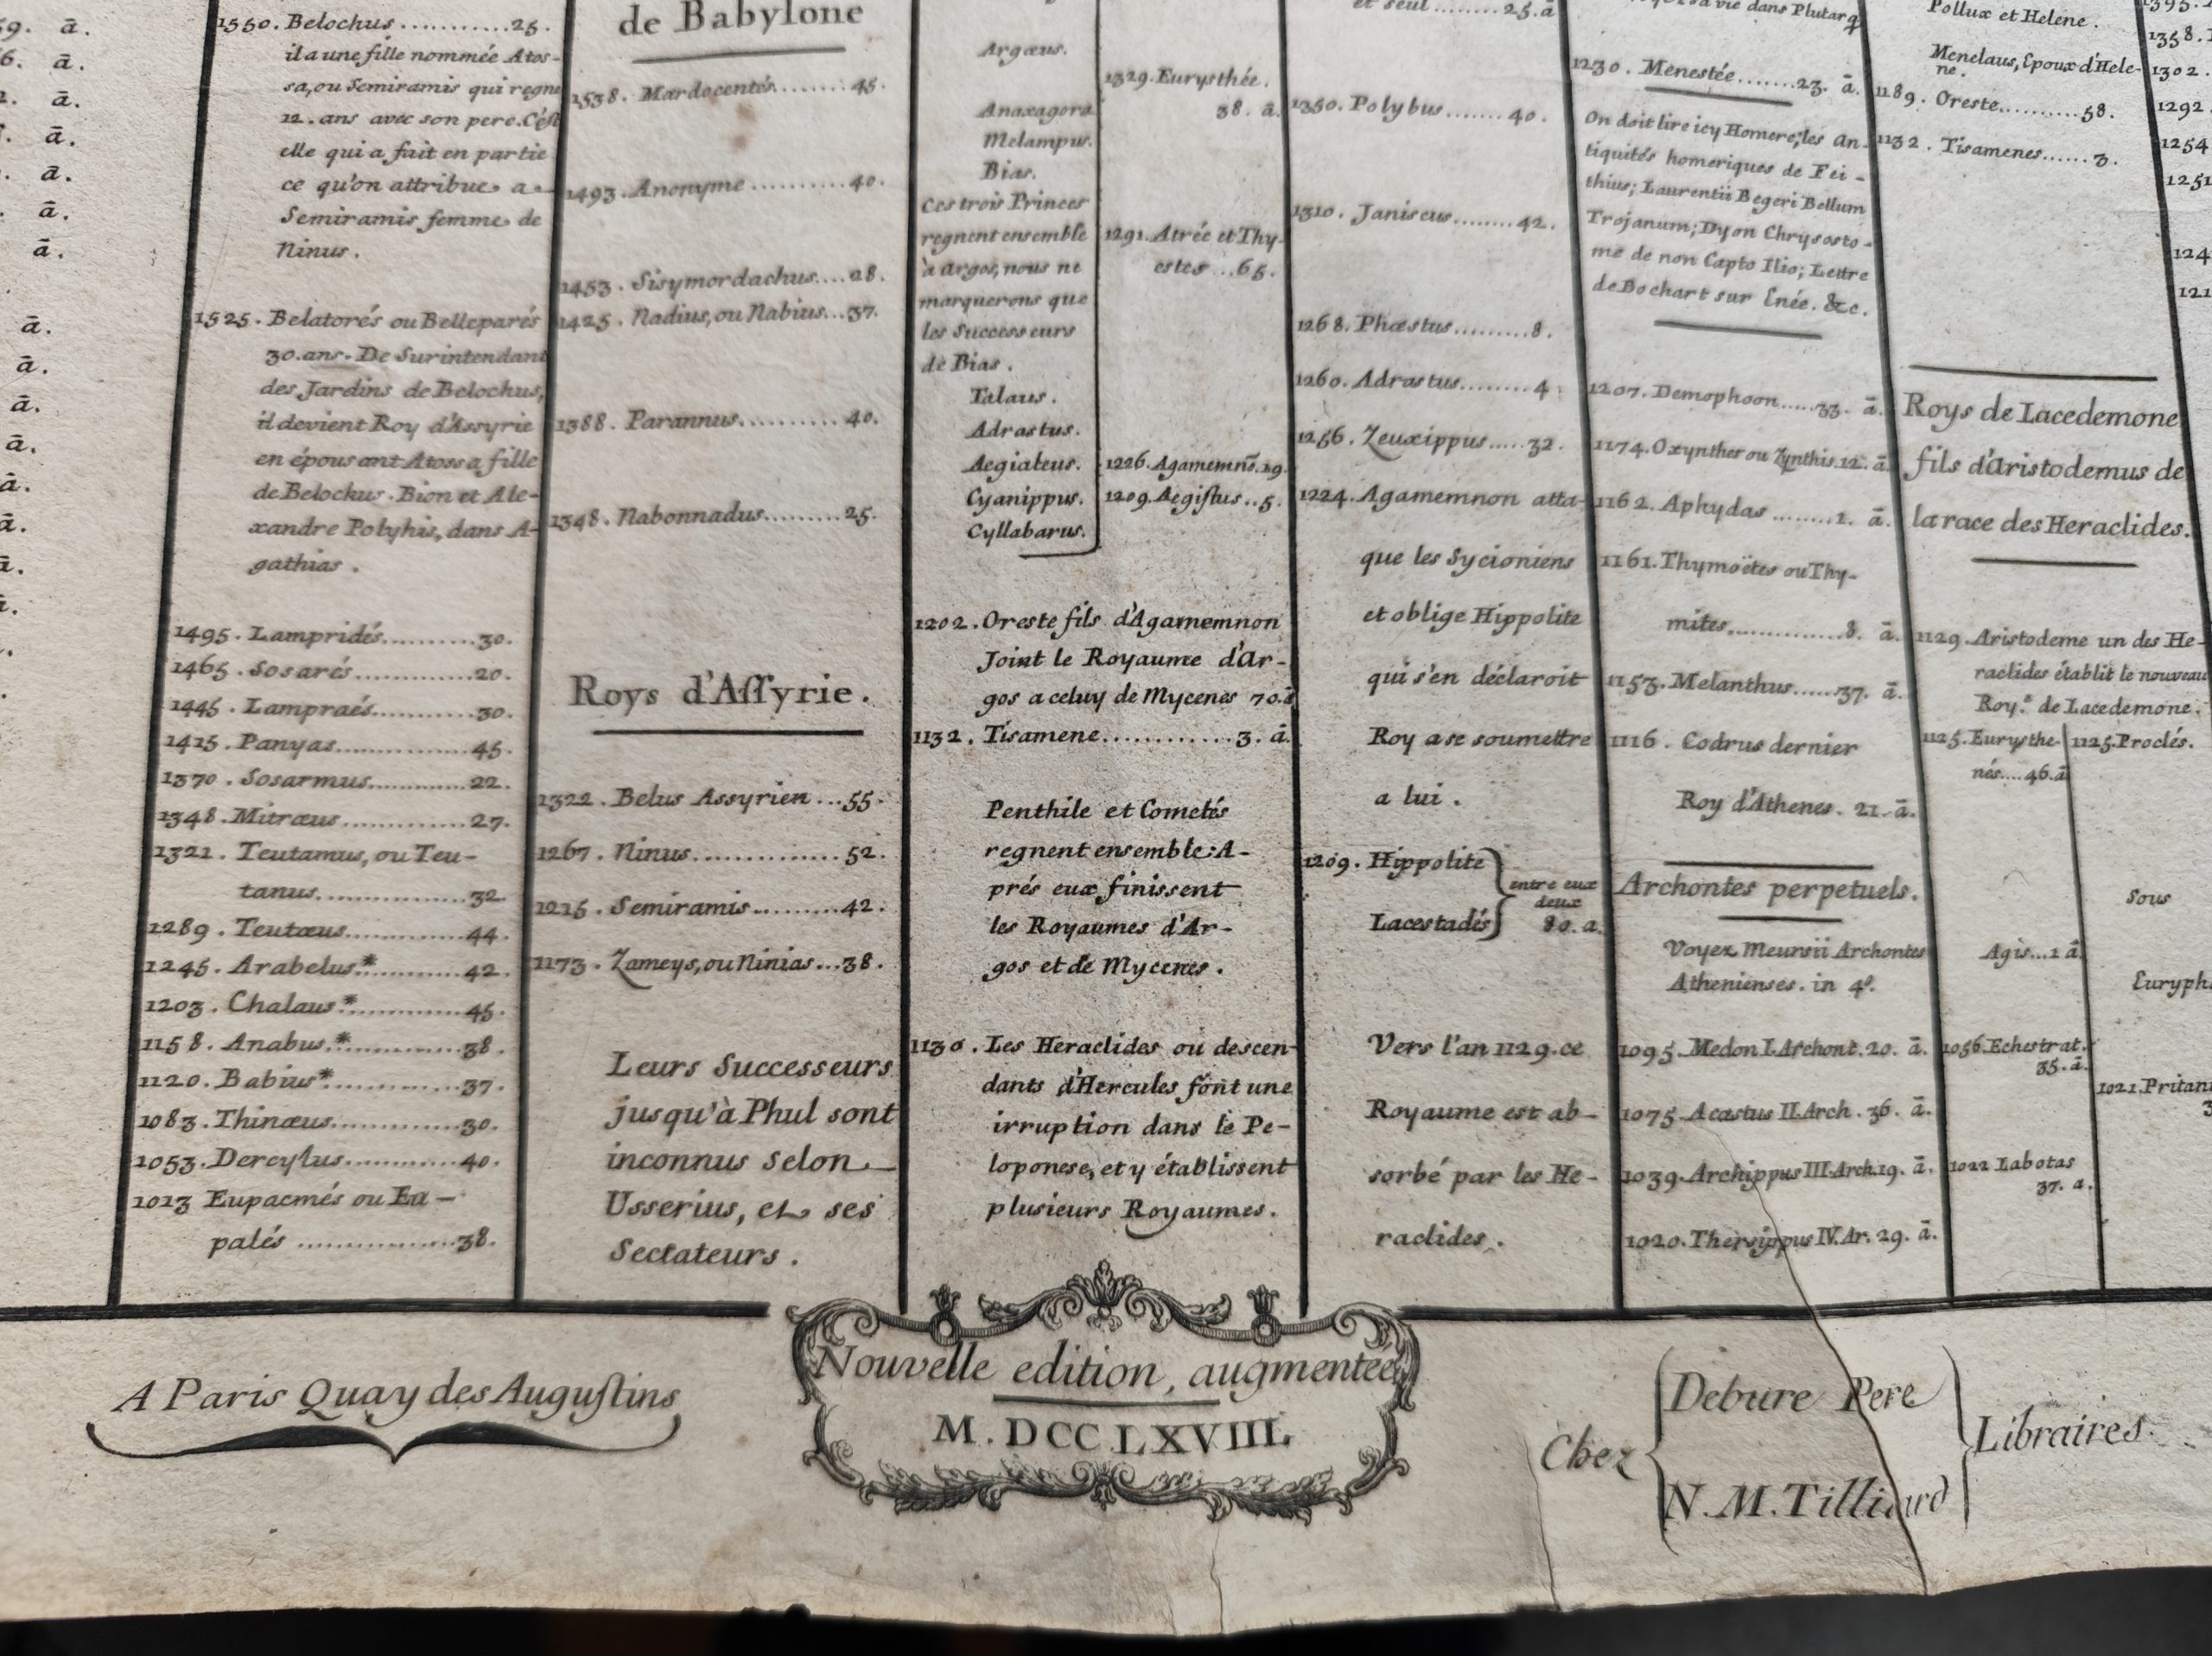 59. ā.
6. ā.
ā.
ā.
ā.
ā.
ā.
ā.
ā.
ā.
ā.
ā.
ā.
1550. Belochus...........25.
il a une fille nommée Atos-
sa, ou Semiramis qui regne
12. ans avec son pere. C'est
elle qui a fait en partie
ce qu'on attribue a
Semiramis femme de
Ninus.
1525. Belatorés ou Belleparés
30. ans. De Surintendant
des Jardins de Belochus,
il devient Roy d'Assyrie
en épousant Atossa fille
de Belockus. Bion et Ale-
xandre Polyhis, dans A-
gathias.
1495. Lampridés..........30.
1465. Sosarés.............20.
1445. Lampraés............30.
1415. Panyas...............45.
1370. Sosarmus.............22.
1348. Mitræus.............27.
1321. Teutamus, ou Teu-
tanus................32.
1289. Teutæus.............44.
1245. Arabelus*............42.
1203. Chalaus*.............45.
1158. Anabus.*.............38.
1120. Babius*..............37.
1083. Thinæus..............30.
1053. Dercylus.............40.
1013 Eupacmés ou Eu-
palés .................38.
de Babylone
1538. Mardocentés........45.
1493. Anonyme..........40.
1453. Sisymordachus....28.
1425. Nadius, ou Nabius...37.
1388. Parannus..........40.
1348. Nabonnadus.........25.
Roys d'Assyrie.
1322. Belus Assyrien...55.
1267. Ninus..............52.
1215. Semiramis.........42.
1173. Zameys, ou Ninias...38.
Leurs Successeurs
jusqu'à Phul sont
inconnus selon
Usserius, et ses
Sectateurs.
Argæus.
Anaxagora
Melampus.
Bias.
Ces trois Princes
regnent ensemble
à Argos, nous ne
marquerons que
les Successeurs
de Bias.
Talaus.
Adrastus.
Aegialeus.
Cyanippus.
Cyllabarus.
1329. Eurysthée.
38. ā.
1291. Atrée et Thy-
estes...65.
1226. Agamemnō. 19.
1209. Aegistus..5.
1202. Oreste fils d'Agamemnon
Joint le Royaume d'Ar-
gos a celuy de Mycenes 70. ā
1132. Tisamene............3. ā.
Penthile et Cometés
regnent ensemble: A-
prés eux finissent
les Royaumes d'Ar-
gos et de Mycenes.
1130. Les Heraclides ou descen-
dants d'Hercules font une
irruption dans le Pe-
loponese, et y établissent
plusieurs Royaumes.
et seul........25. ā
1350. Polybus.......40.
1310. Janiscus........42.
1268. Phæstus.........8.
1260. Adrastus........4.
1256. Zeuxippus.....32.
1224. Agamemnon atta-
que les Sycioniens
et oblige Hippolite
qui s'en déclaroit
Roy a se soumettre
a lui.
1209. Hippolite
Lacestadés
entre eux
deux
80. a.
Vers l'an 1129. ce
Royaume est ab-
sorbé par les He-
raclides.
sa vie dans Plutarq
1230. Menestée.......23. ā.
On doit lire icy Homere; les An-
tiquités homeriques de Fei-
thius; Laurentii Begeri Bellum
Trojanum; Dyon Chrysosto-
me de non Capto Ilio; Lettre
de Bochart sur Enée. &c.
1207. Demophoon.....33. ā.
1174. Oxynther ou Zynthis. 12. ā.
1162. Aphydas........1. ā.
1161. Thymoëtes ou Thy-
mites..............8. ā.
1153. Melanthus......37. ā.
1116. Codrus dernier
Roy d'Athenes. 21. ā.
Archontes perpetuels.
Voyez Meursii Archontes
Athenienses. in 4°.
1095. Medon I. Archont. 20. ā.
1075. Acastus II. Arch. 36. ā.
1039. Archippus III. Arch. 19. ā.
1020. Thersippus IV. Ar. 29. ā.
Pollux et Helene.
Menelaus, Epoux d'Hele-
ne.
1189. Oreste..........58.
1132. Tisamenes......3.
Roys de Lacedemone
fils d'Aristodemus de
la race des Heraclides.
1129. Aristodeme un des He-
raclides établit le nouveau
Roy.e de Lacedemone.
1125. Eurysthe-
nés....46. ā
1125. Proclés.
Sous
Agis...1 ā.
Euryph
1056. Echestrat.
35. ā.
1021. Pritan
1022 Labotas
37. a.
1395.
1358.
1302.
1292
1254
1251
124
121
A Paris Quay des Augustins
Nouvelle edition, augmentée
M. DCC LXVIII
Chez
Debure Pere
N. M. Tilliard
Libraires.